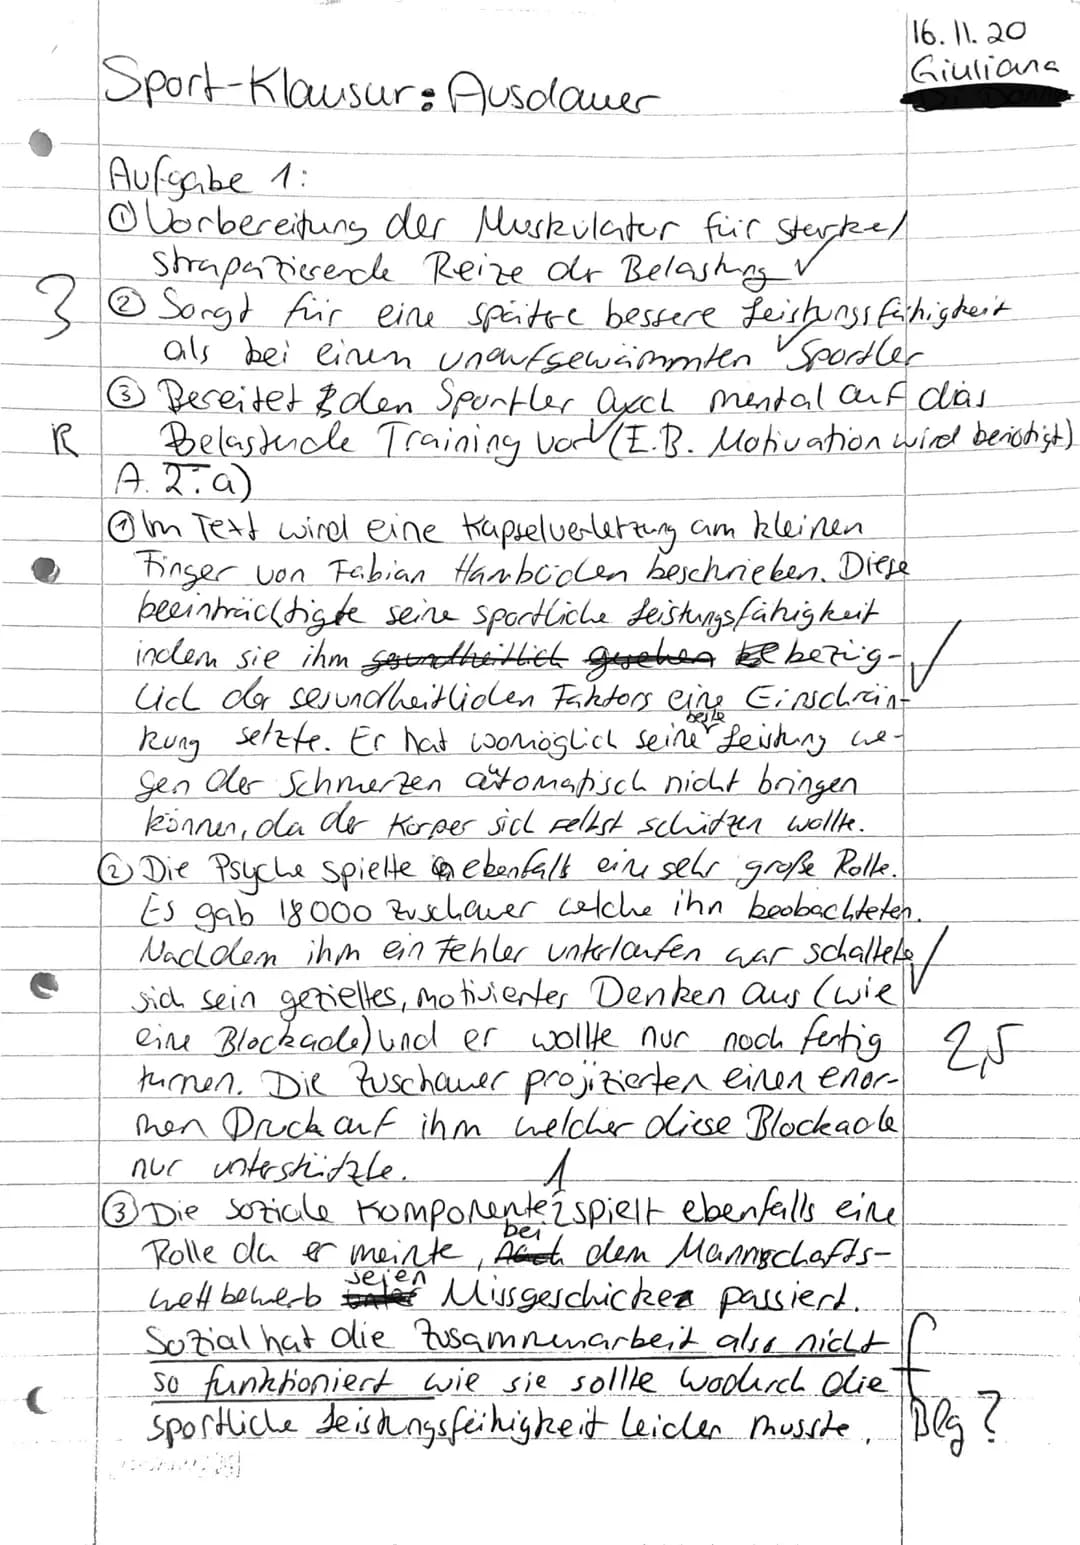 16.11.20
Giuliana
Sport-Klausur: Ausdauer
Aufgabe 1:
① Vorbereitung der Muskulatur für starke/
strapazierende Reize der Belastung ✓
3
② Sorgt für eine spätere bessere Leistungsfähigkeit
als bei einem unaufgewärmten ✓ Sportler
③ Bereitet den Sportler auch mental auf das
R
Belastende Training vor ✓ (z.B. Motivation wird benötigt)
A. 2. a)
① Im Text wird eine Kapselverletzung am kleinen
Finger von Fabian Hambüchen beschrieben. Diese
beeinträchtigte seine sportliche Leistungsfähigkeit
indem sie ihm gesundheitlich gesehen bezüg- ✓
lich der gesundheitlichen Faktors eine Einschrän-
kung setzte. Er hat womöglich seine beste Leistung we-
gen der Schmerzen automatisch nicht bringen
können, da der Körper sich selbst schützen wollte.
② Die Psyche spielte ebenfalls eine sehr große Rolle.
Es gab 18000 Zuschauer welche ihn beobachteten.
Nachdem ihm ein Fehler unterlaufen war schaltete ✓
sich sein gezieltes, motiviertes Denken aus (wie
eine Blockade) und er wollte nur noch fertig
2,5
turnen. Die Zuschauer projizierten einen enor-
men Druck auf ihm welcher diese Blockade
nur unterstützte.
1
③ Die soziale Komponente spielt ebenfalls eine
Rolle da er meinte, bei dem Mannschafts-
wettbewerb seien Missgeschicke passiert.
Sozial hat die Zusammenarbeit also nicht f
so funktioniert wie sie sollte wodurch die
sportliche Leistungsfähigkeit leiden musste. Blg?